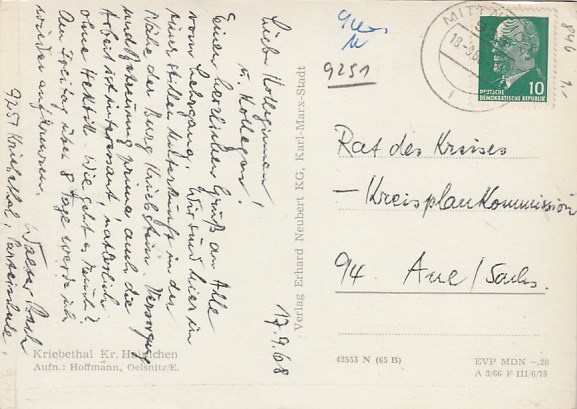 17.9.68
Liebe Kolleginnen
u. Kollegen!
Einen herzlichen Gruß an Alle
vom Lehrgang. Wir sind hier in
einer stillen Unterkunft in der
Nähe der Burg Kriebstein. Versorgung
und Betreuung prima, auch die
Arbeit ist interessant, natürlich
ohne Hektik. Wie geht es
Am Freitag über 8 Tage werde ich
wieder
Walter
9251 Kriebethal,
Kriebethal Kr. Hainichen
Aufn.: Hoffmann, Oelsnitz/E.
Verlag Erhard Neubert KG, Karl-Marx-Stadt
9251
MITTW
18-9.68
DEUTSCHE
DEMOKRATISCHE REPUBLIK
10
Rat des Kreises
– Kreisplankommission
94 Aue/Sachs.
42553 N (65 B)
EVP MDN –,20
A 3/66 F III/6/75